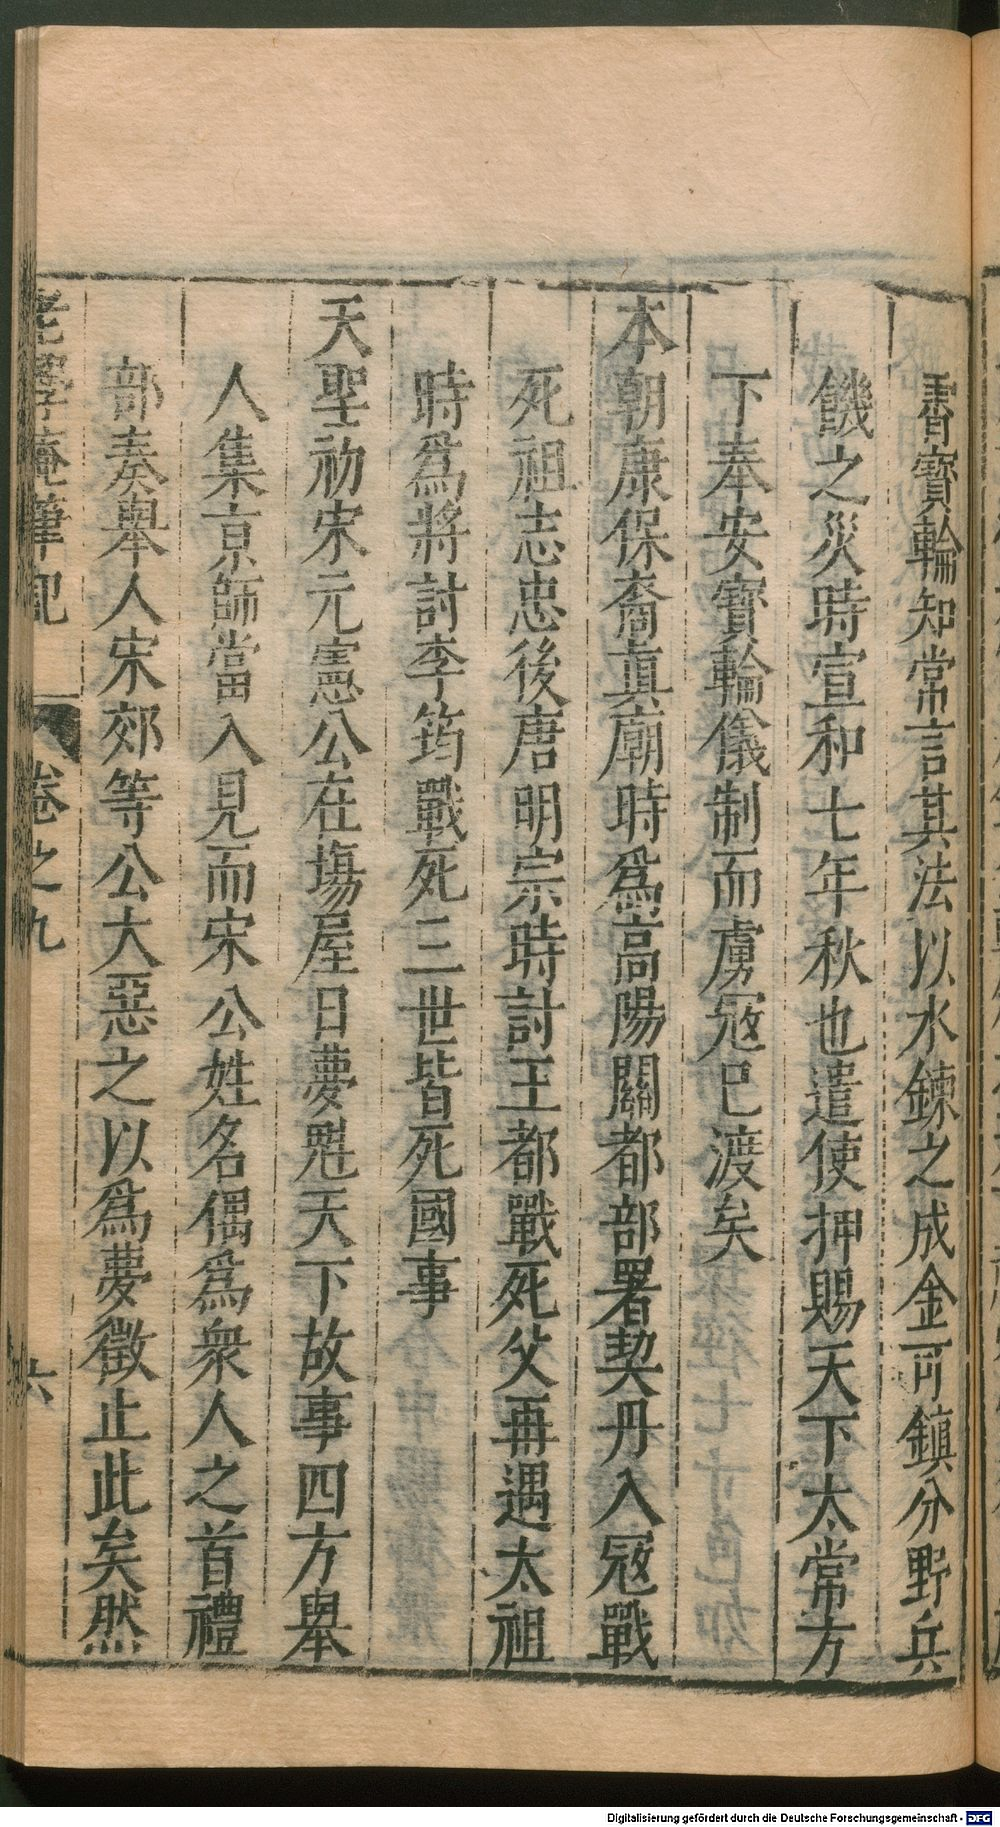 霄寶輪知常言其法以水鍊之成金可鎮分野兵
饑之災時宣和七年秋也遣使押賜天下太常方
下奉安寶輪儀制而虜冦巳渡矣
本朝康保裔真廟時爲高陽關都部署契丹入冦戰
死祖志忠後唐明宗時討王都戰死父再遇太祖
時爲將討李筠戰死三世皆死國事
天聖初宋元憲公在塲屋日夢魁天下故事四方舉
人集京師當入見而宋公姓名偶爲衆人之首禮
部奏舉人宋郊等公大惡之以爲夢徵止此矣然
老學庵筆記 卷之九 六
Digitalisierung gefördert durch die Deutsche Forschungsgemeinschaft - DFG